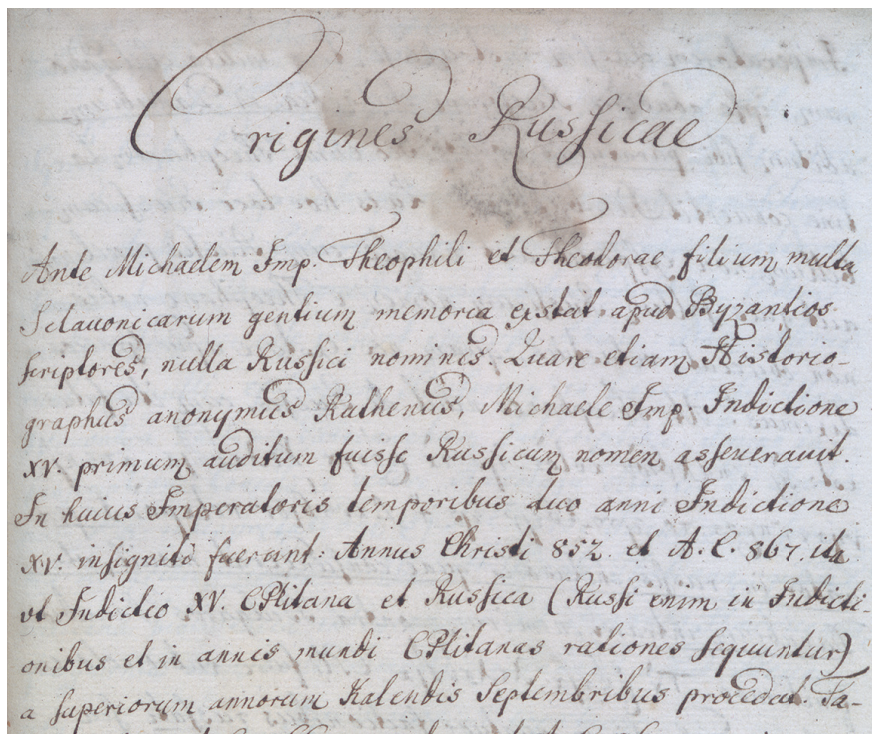 Origines Russicae
Ante Michaelem Imp. Theophili et Theodorae filium, multa
Sclavonicarum gentium memoria exstat apud Byzantios
scriptores, nulla Russici nominis. Quare etiam Historio-
graphus anonymus Ruthenus, Michaele Imp. Indictione
XV. primum auditum fuisse Russicum nomen asseuerauit.
In huius Imperatoris temporibus duo anni Indictione
XV. insigniti fuerunt: Annus Christi 852 et A. C. 867. ita
vt Indictio XV. CPlitana et Russica (Russi enim in Indicti-
onibus et in annis mundi CPlitanas rationes sequuntur)
a superiorum annorum Kalendis Septembribus procedat. Ta-